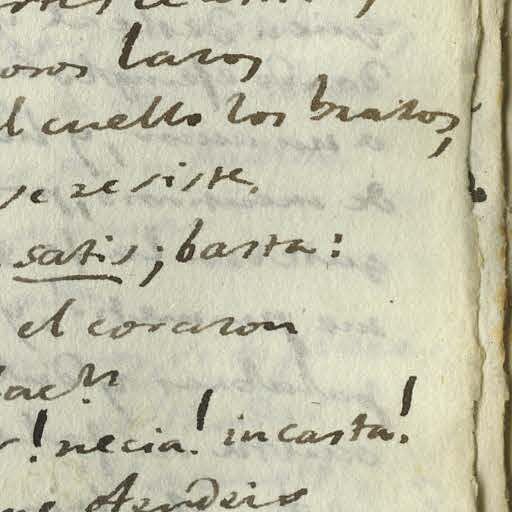 osos lazos
l cuello los brazos,
se resiste,
satis; basta:
el corazon
! necia! incasta!
ofendeis